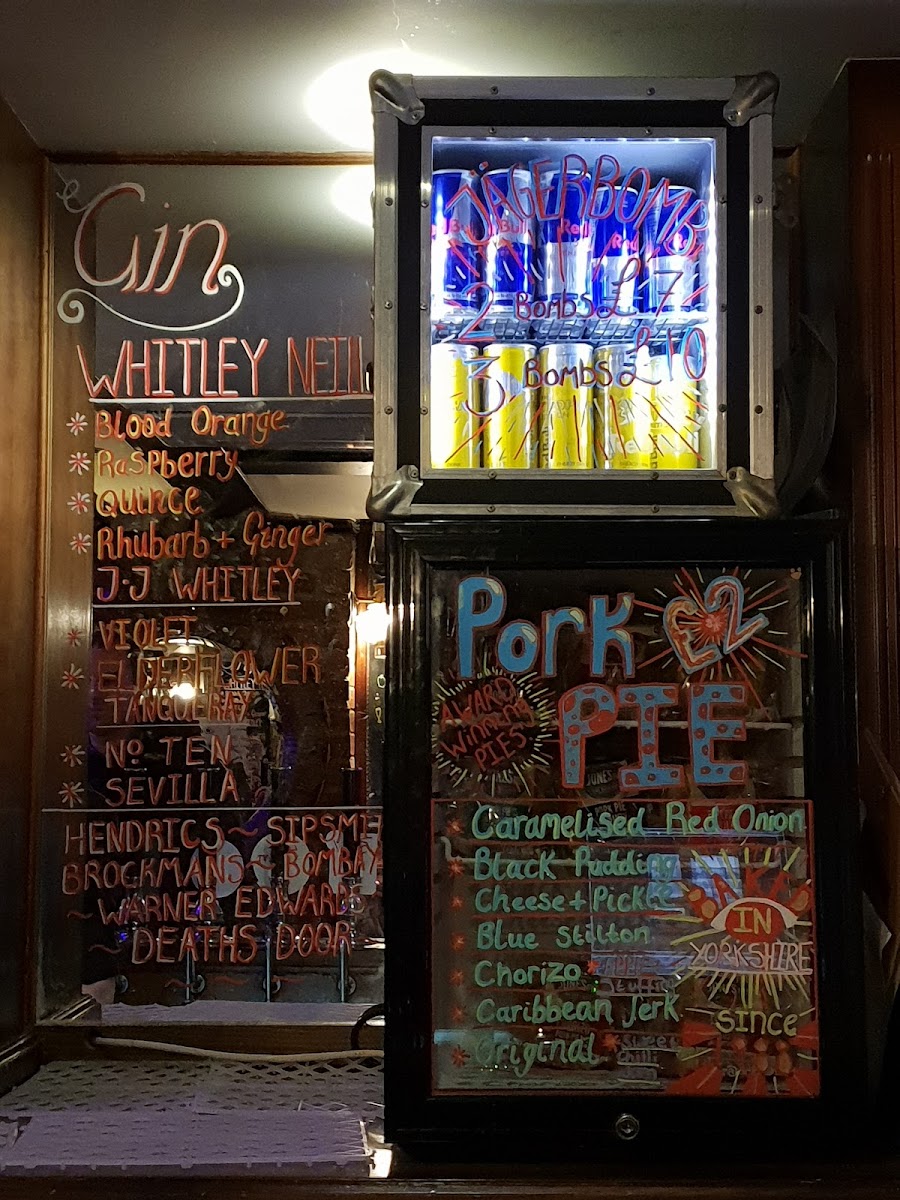 Gin
WHITLEY NEILL
Blood Orange
Raspberry
Quince
Rhubarb + Ginger
J.J WHITLEY
VIOLET
ELDERFLOWER
TANQUERAY
No TEN
SEVILLA
HENDRICS ~ SIPSMI
BROCKMANS ~ BOMBAY
~ WARNER EDWARDS
~ DEATHS DOOR
JÄGERBOMB
Bull Bull Red Red Red
2 BOMBS £7
3 BOMBS £10
Pork £2
PIE
AWARD
Winning
PIES
Caramelised Red Onion
Black Pudding
Cheese + Pickle
Blue Stilton
Chorizo
Caribbean Jerk
Original
IN
YORKSHIRE
SINCE